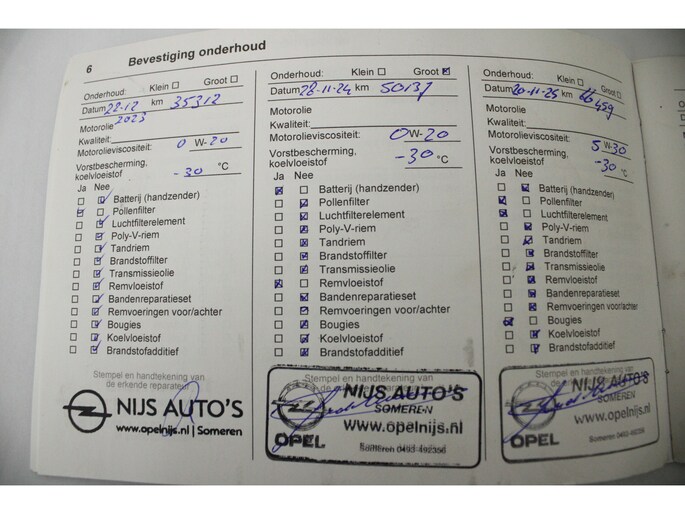 6 Bevestiging onderhoud
Onderhoud: Klein Groot
Datum 22-12 km 35312
2023
Motorolie
Kwaliteit:
Motorolieviscositeit: 0 W-20
Vorstbescherming,
koelvloeistof -30 °C
Ja Nee
Batterij (handzender)
Pollenfilter
Luchtfilterelement
Poly-V-riem
Tandriem
Brandstoffilter
Transmissieolie
Remvloeistof
Bandenreparatieset
Remvoeringen voor/achter
Bougies
Koelvloeistof
Brandstofadditief
Stempel en handtekening van
de erkende reparateur
NIJS AUTO'S
www.opelnijs.nl | Someren
Onderhoud: Klein Groot
Datum 28-11-24 km 50137
Motorolie
Kwaliteit:
Motorolieviscositeit: 0 W-20
Vorstbescherming,
koelvloeistof -30 °C
Ja Nee
Batterij (handzender)
Pollenfilter
Luchtfilterelement
Poly-V-riem
Tandriem
Brandstoffilter
Transmissieolie
Remvloeistof
Bandenreparatieset
Remvoeringen voor/achter
Bougies
Koelvloeistof
Brandstofadditief
Stempel en handtekening van
NIJS AUTO'S
SOMEREN
www.opelnijs.nl
OPEL
Someren 0493-492356
Onderhoud: Klein Groot
Datum 20-11-25 km 66459
Motorolie
Kwaliteit:
Motorolieviscositeit: 5 W-30
Vorstbescherming,
koelvloeistof -30 °C
Ja Nee
Batterij (handzender)
Pollenfilter
Luchtfilterelement
Poly-V-riem
Tandriem
Brandstoffilter
Transmissieolie
Remvloeistof
Bandenreparatieset
Remvoeringen voor/achter
Bougies
Koelvloeistof
Brandstofadditief
Stempel en handtekening van
NIJS AUTO'S
SOMEREN
www.opelnijs.nl
OPEL
Someren 0493-492356